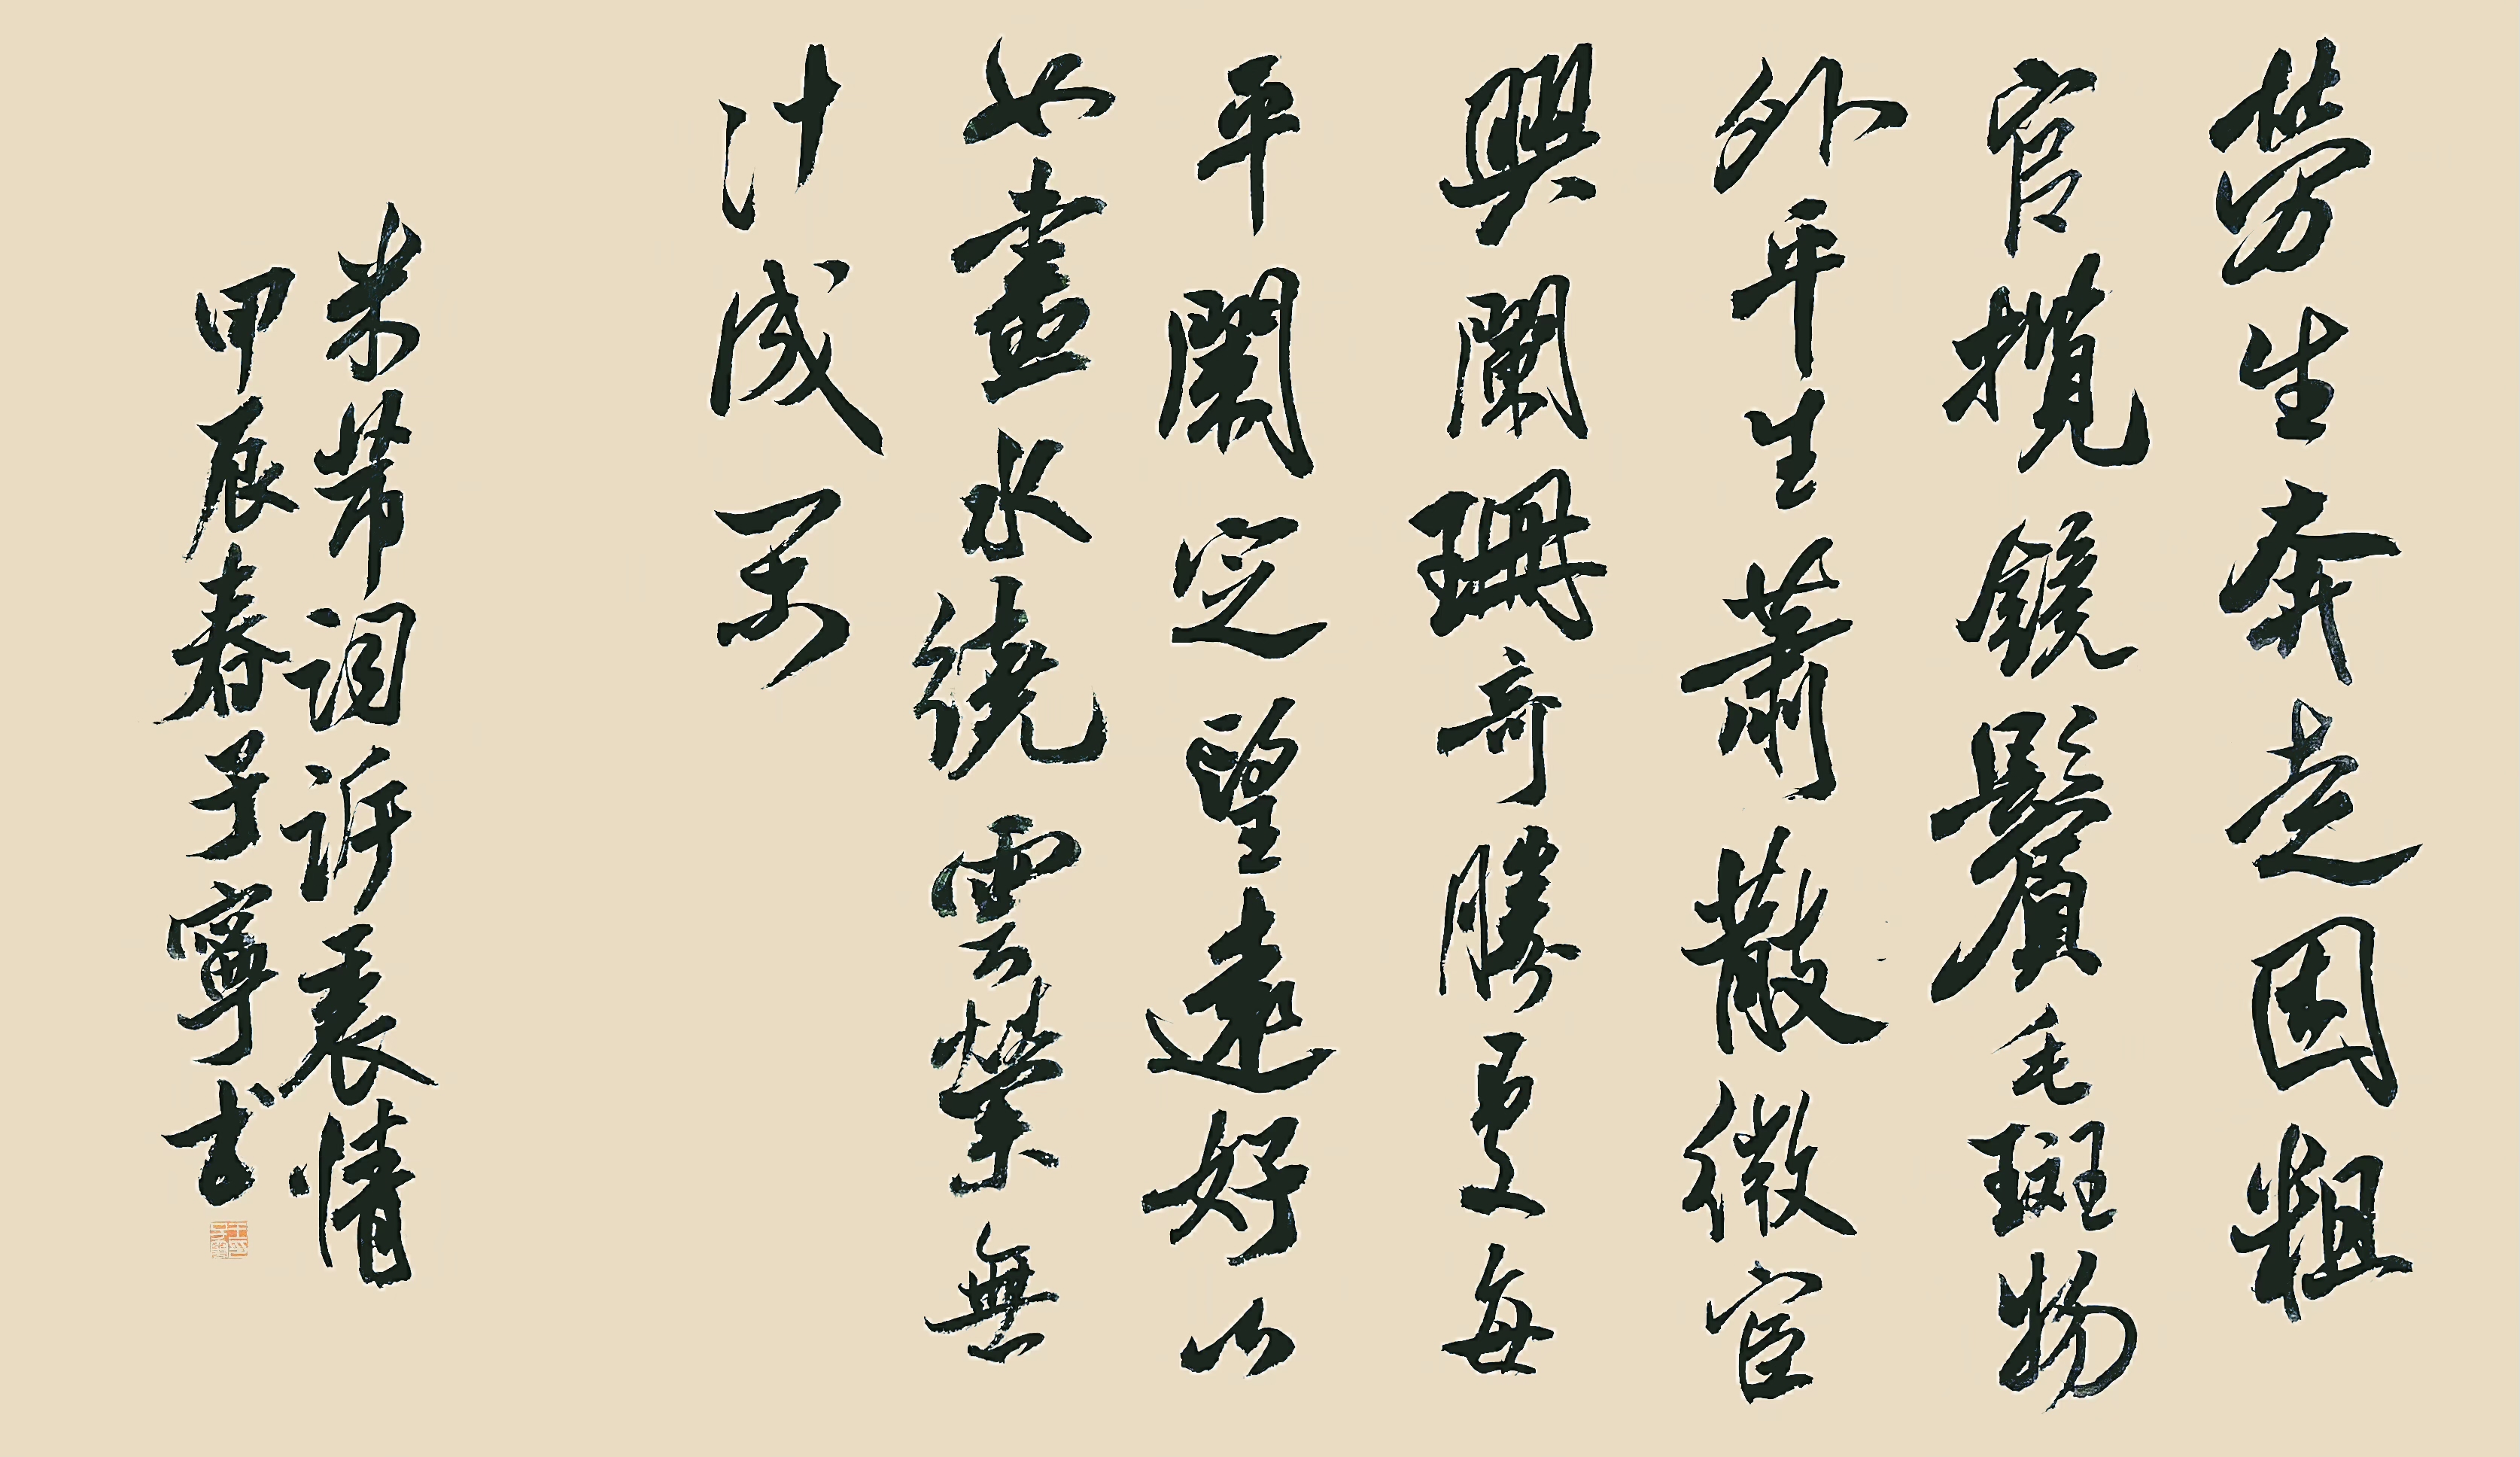 勞生奔走困粗
官攬鏡鬢毛斑物
外平生蕭散微宦
興闌珊奇勝處每
平闌定望遠好山
如畫水繞雲縈無
計成閑
米芾詞訴衷情
甲辰春子寧書